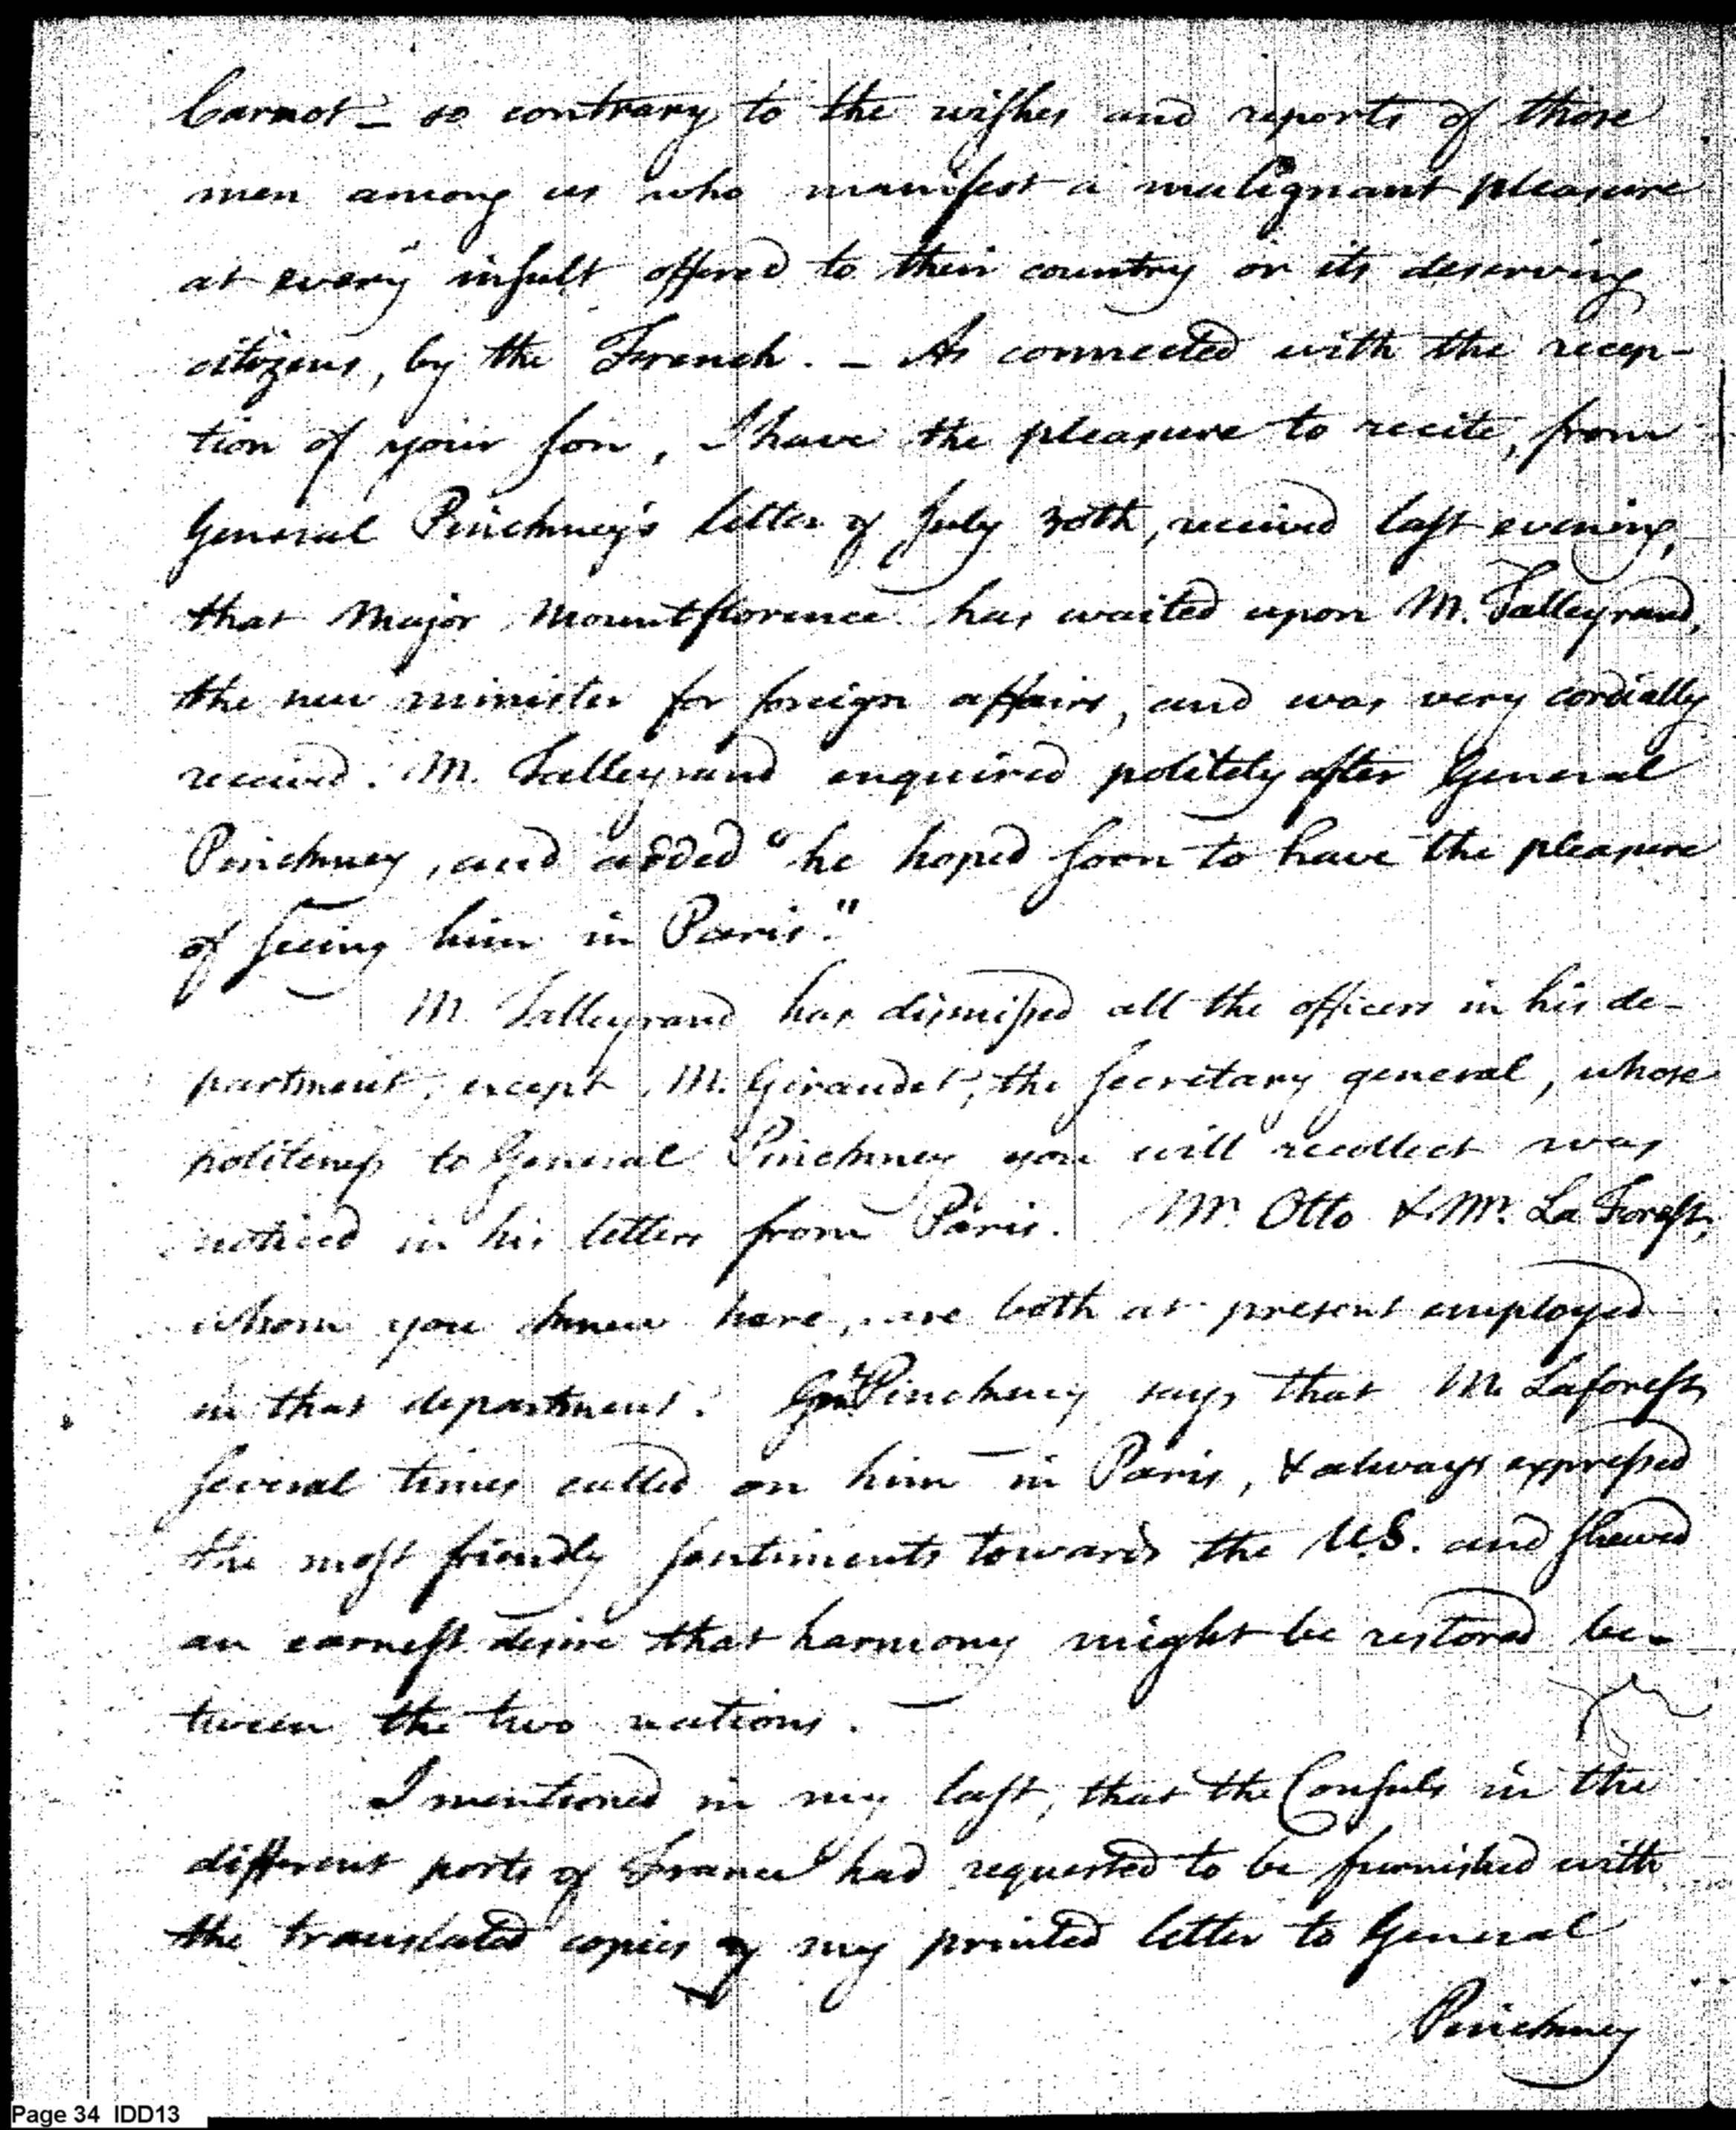 Carnot – so contrary to the wishes and reports of those
men among us who manifest a malignant pleasure
at every insult offered to their country or its deserving
citizens, by the French. – As connected with the recep-
tion of your son, I have the pleasure to recite, from
General Pinckney's letter of July 30th, received last evening,
that Major Mountflorence has waited upon M. Talleyrand,
the new minister for foreign affairs, and was very cordially
received. M. Talleyrand enquired politely after General
Pinckney, and added "he hoped soon to have the pleasure
of seeing him in Paris."
M. Talleyrand has dismissed all the officers in his de-
partment, except M. Giraudet, the secretary general, whose
politeness to General Pinckney you will recollect was
noticed in his letters from Paris. Mr. Otto & Mr. La Forest,
whom you knew here, are both at present employed
in that department. Genl Pinckney says that M. Laforest,
several times called on him in Paris, & always expressed
the most friendly sentiments towards the U.S. and shewed
an earnest desire that harmony might be restored be-
tween the two nations. –
I mentioned in my last, that the Consuls in the
different ports of France had requested to be furnished with
the translated copies of my printed letter to General
Pinckney
Page 34 IDD13